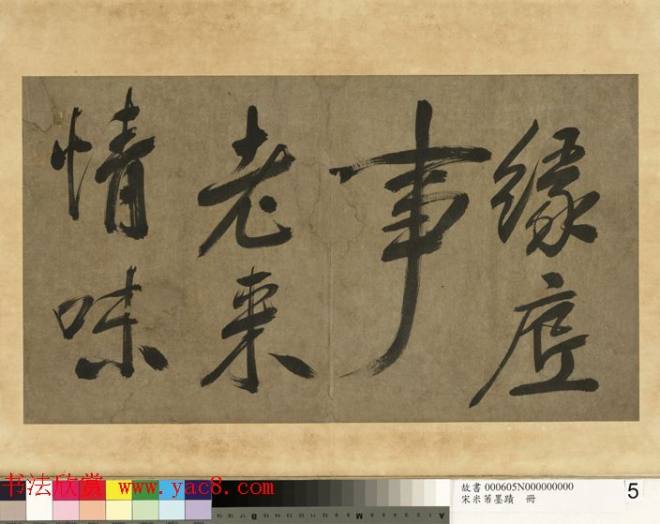 緣
事
老来
情味
书法欣赏 www.yac8.com
故書 000605N000000000
宋米芾墨蹟 冊
5